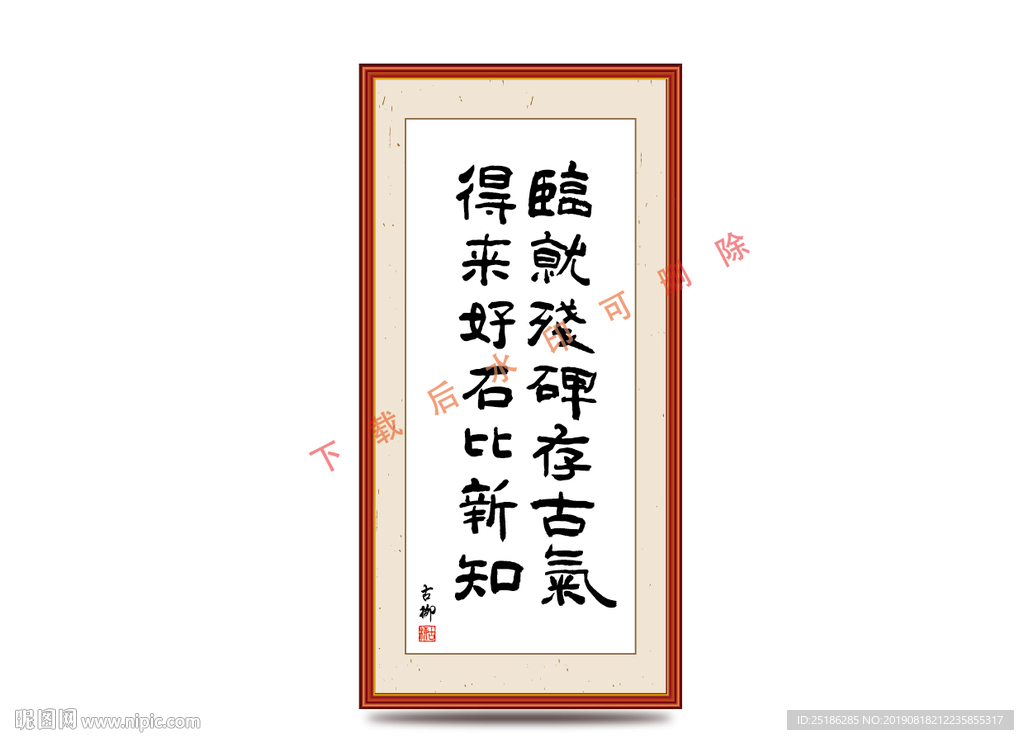 臨就殘碑存古氣
得来好石比新知
古柳
下载后水印可删除
昵图网 www.nipic.com
ID:25186285 NO:20190818212235855317